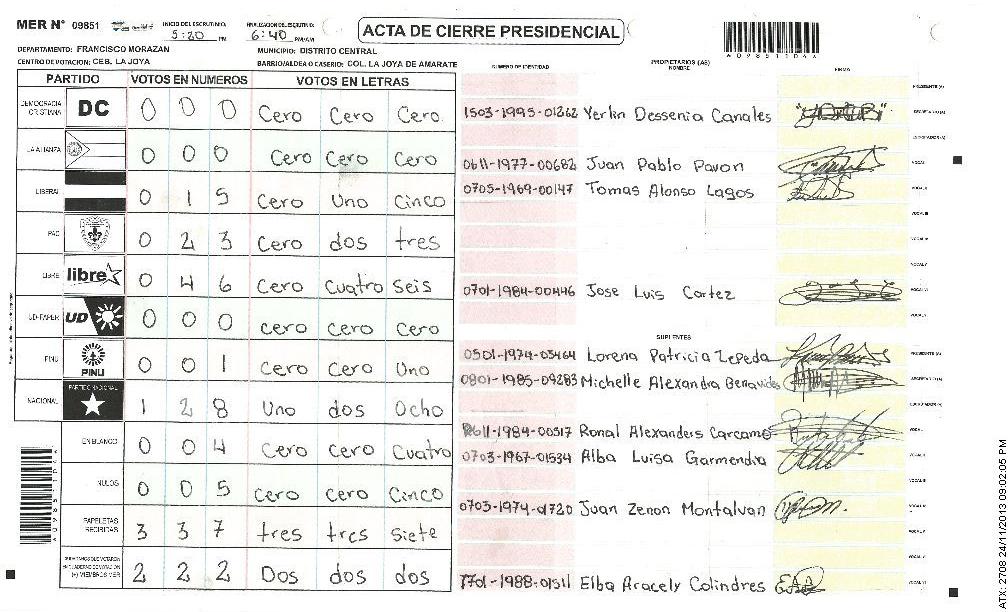 MER N° 09851
INICIO DEL ESCRUTINIO: 5:20 PM
FINALIZACION DEL ESCRUTINIO: 6:40 PM/AM
ACTA DE CIERRE PRESIDENCIAL
DEPARTAMENTO: FRANCISCO MORAZAN
MUNICIPIO: DISTRITO CENTRAL
CENTRO DE VOTACION: CEB. LA JOYA
BARRIO/ALDEA O CASERIO: COL. LA JOYA DE AMARATE
NUMERO DE IDENTIDAD
PROPIETARIOS (AS)
NOMBRE
FIRMA
PARTIDO VOTOS EN NUMEROS VOTOS EN LETRAS
DEMOCRACIA CRISTIANA DC 0 0 0 Cero Cero Cero
LA ALIANZA 0 0 0 Cero Cero Cero
LIBERAL 0 1 5 Cero Uno Cinco
PAC 0 2 3 Cero dos tres
LIBRE libre 0 4 6 Cero Cuatro Seis
UD-FAPER UD 0 0 0 Cero Cero Cero
PINU PINU 0 0 1 Cero Cero Uno
NACIONAL PARTIDO NACIONAL 1 2 8 Uno dos Ocho
EN BLANCO 0 0 4 Cero Cero Cuatro
NULOS 0 0 5 Cero Cero Cinco
PAPELETAS RECIBIDAS 3 3 7 tres tres Siete
(+) MIEMBROS MER 2 2 2 Dos dos dos
PRESIDENTE (A)
1503-1995-01262 Yerlin Dessenia Canales SECRETARIO (A)
0611-1977-00682 Juan Pablo Pavon VOCAL I
0703-1969-00147 Tomas Alonso Lagos VOCAL II
VOCAL III
VOCAL IV
VOCAL V
0701-1984-00446 Jose Luis Cortez VOCAL VI
SUPLENTES
0501-1974-03464 Lorena Patricia Zepeda PRESIDENTE (A)
0801-1985-09283 Michelle Alexandra Benavides SECRETARIO (A)
0611-1984-00317 Ronal Alexanders Carcamo VOCAL I
0703-1967-01534 Alba Luisa Garmendia VOCAL II
VOCAL III
0703-1974-01720 Juan Zenon Montalvan VOCAL IV
VOCAL V
1701-1988-01511 Elba Aracely Colindres
ATX: 2708 24/11/2013 09:02:05 PM